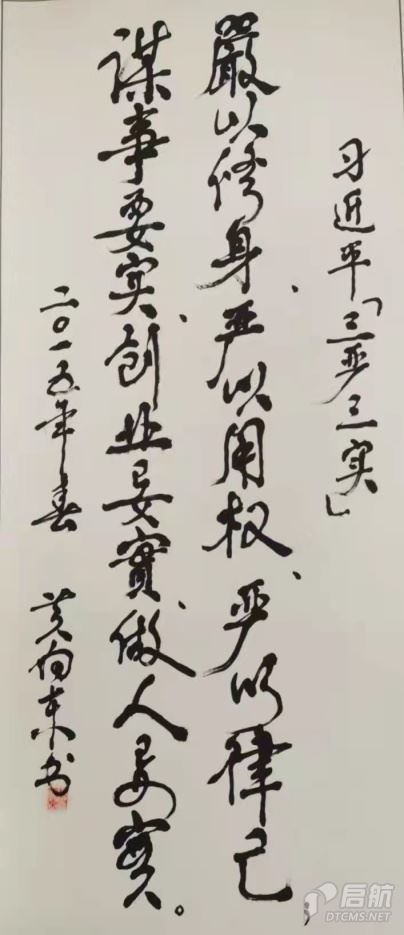 习近平「三严三实」
嚴以修身、严以用权、严以律己，
谋事要实、创业要實、做人要实。
二〇一五年春 黄向东书
启航
DTCMS.NET